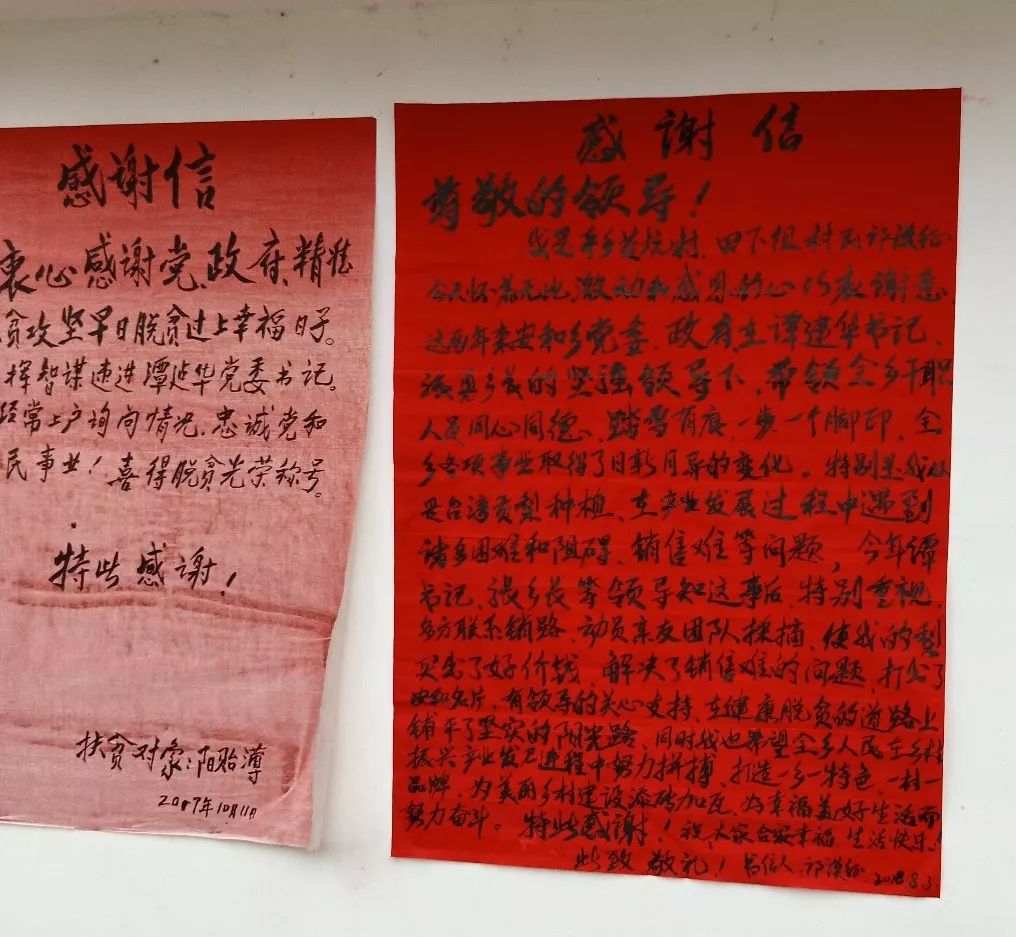 感谢信
衷心感谢党、政府、精准
贫攻坚早日脱贫过上幸福日子。
挥智谋速进谭建华党委书记。
经常上户询问情况、忠诚党和
民事业！喜得脱贫光荣称号。
特此感谢！
扶贫对象：阳贻
2017年10月11日
感谢信
尊敬的领导！
我是本乡 村、四下组村民
今天怀着无比激动和感恩的心 表谢意
这两年来安和乡党委、政府在谭建华书记、
张 乡长的坚强领导下、带领全乡干职
人员同心同德、踏雪有痕、一步一个脚印、全
乡各项事业取得了日新月异的变化。特别是我
是台湾贡梨种植、在产业发展过程中遇到
诸多困难和阻碍、销售难等问题、今年谭
书记、张乡长等领导知这事后、特别重视、
多方联系销路、动员亲友团队采摘、使我的梨
买出了好价钱、解决了销售难的问题、打出了
安和名片、有领导的关心支持、在健康脱贫的道路上
铺平了坚实的阳光路、同时我也希望全乡人民在乡村
振兴产业发展进程中努力拼搏、打造一乡一特色、一村一
品牌、为美丽乡村建设添砖加瓦、为幸福美好生活而
努力奋斗。特此感谢！祝大家合家幸福、生活快乐！
此致 敬礼！ 书信人： 2018.8.3